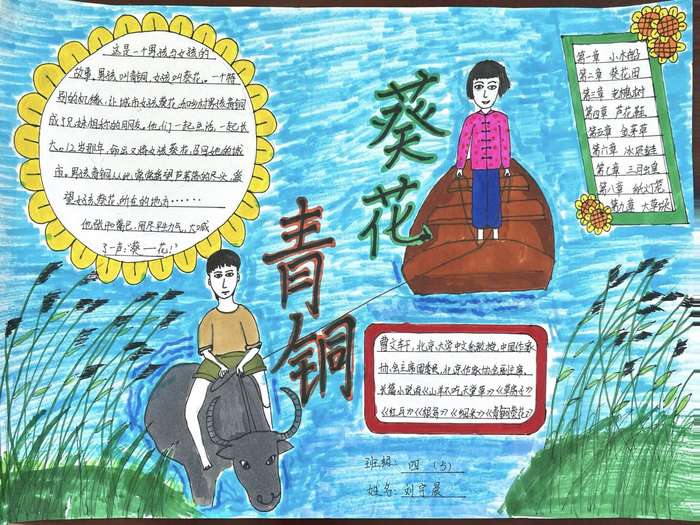 这是一个男孩与女孩的
故事。男孩叫青铜,女孩叫葵花。一个特
别的机缘,让城市女孩葵花和乡村男孩青铜
成了兄妹相称的朋友。他们一起生活、一起长
大。12岁那年,命运又将女孩葵花召回她的城
市。男孩青铜从此常常遥望芦荡的尽头,遥
望妹妹葵花所在的地方······
他张开嘴巴,用尽平生力气,大喊
了一声:"葵—花!"
青铜
葵花
第一章 小木船
第二章 葵花田
第三章 老槐树
第四章 芦花鞋
第五章 金茅草
第六章 冰项链
第七章 三月蝗
第八章 纸灯笼
第九章 大草垛
曹文轩,北京大学中文系教授,中国作家
协会
长篇小说《山羊不吃天堂草》《草房子》
《红瓦》《根鸟》《细米》《青铜葵花》
班级: 四(5)
姓名: 刘宇晨